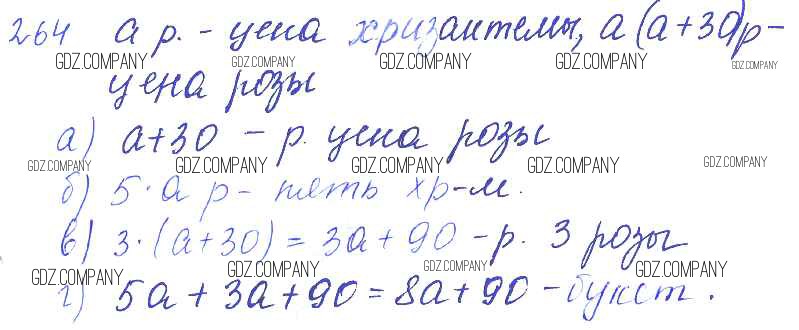 264 а р. - цена хризантемы, а (а+30)р -
GDZ.COMPANY GDZ.COMPANY GDZ.COMPANY GDZ.COMPANY GDZ.COMPANY
цена розы
а) а+30 - р. цена розы
GDZ.COMPANY GDZ.COMPANY GDZ.COMPANY GDZ.COMPANY GDZ.COMPANY
б) 5·а р - пять хр-м.
в) 3·(а+30) = 3а+90 - р. 3 розы
GDZ.COMPANY GDZ.COMPANY GDZ.COMPANY GDZ.COMPANY
г) 5а+3а+90=8а+90 - букет.